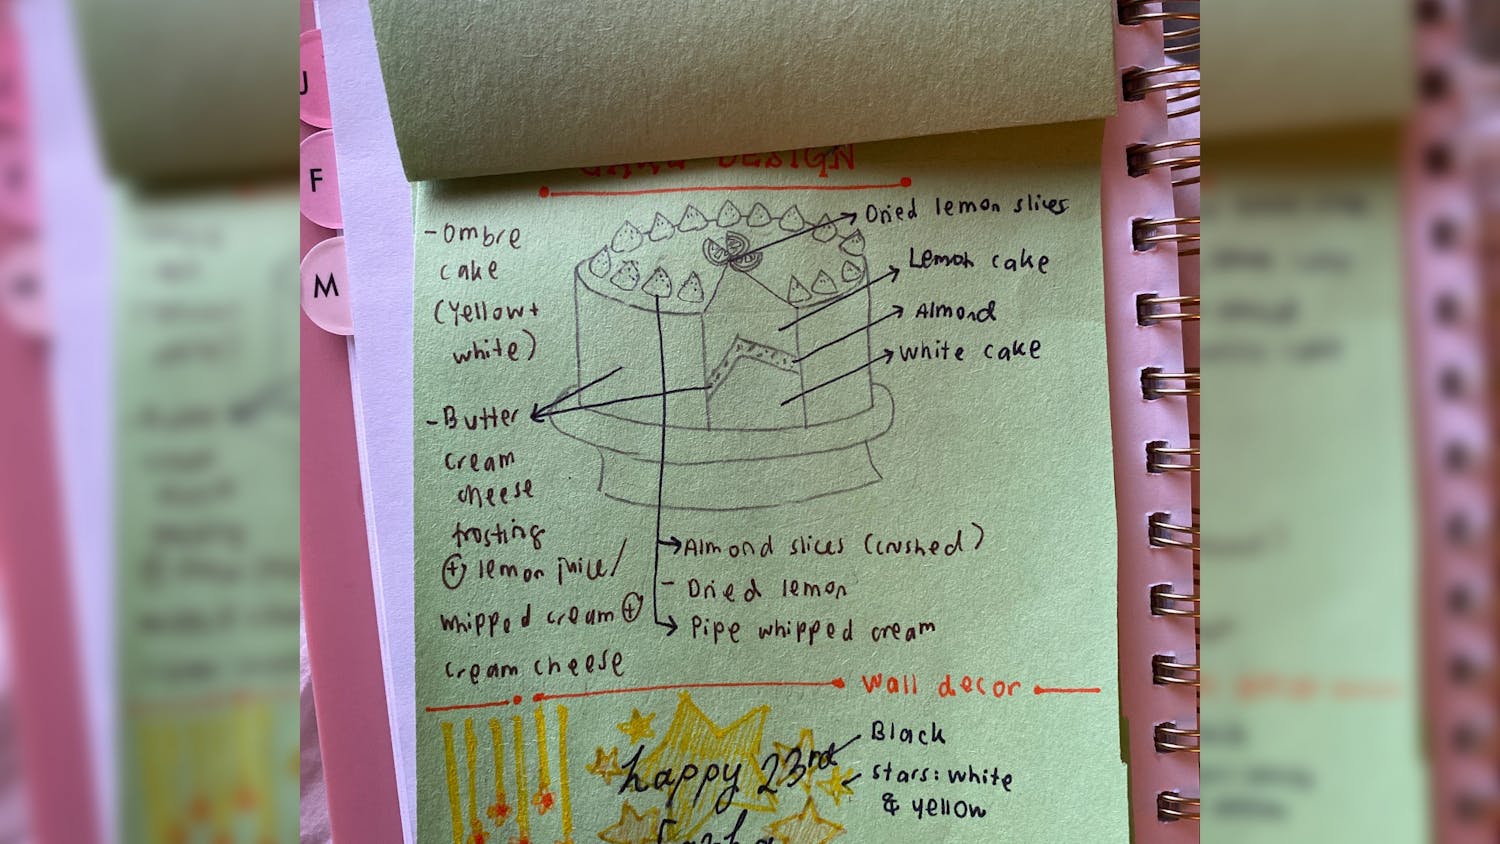 J
F
M
CAKE DESIGN
-Ombre
cake
(Yellow+
white)
-Butter
cream
cheese
frosting
+ lemon juice/
whipped cream +
cream cheese
Dried lemon slices
Lemon cake
Almond
White cake
Almond slices (crushed)
- Dried lemon
Pipe whipped cream
Wall decor
happy 23rd
Black
stars: white
& yellow